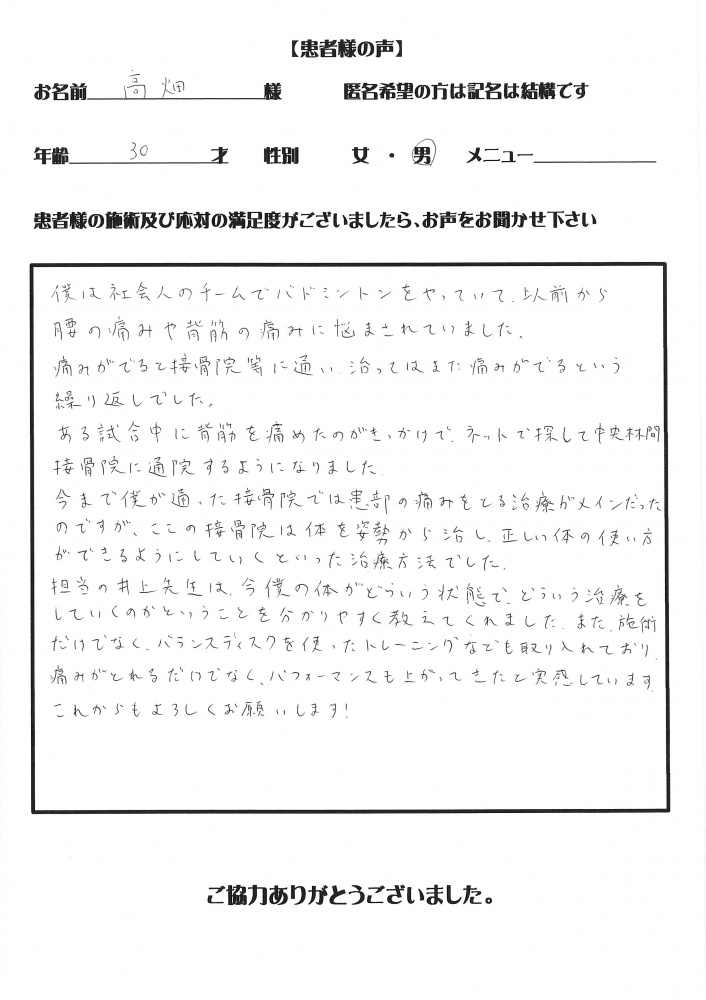 【患者様の声】
お名前 高畑 様 匿名希望の方は記名は結構です
年齢 30 才 性別 女・男 メニュー
患者様の施術及び応対の満足度がございましたら、お声をお聞かせ下さい
僕は社会人のチームでバドミントンをやっていて、以前から
腰の痛みや背筋の痛みに悩まされていました。
痛みがでると接骨院等に通い、治ってはまた痛みがでるという
繰り返しでした。
ある試合中に背筋を痛めたのがきっかけで、ネットで探して中央林間
接骨院に通院するようになりました。
今まで僕が通った接骨院では患部の痛みをとる治療がメインだった
のですが、ここの接骨院は体を姿勢から治し、正しい体の使い方
ができるようにしていくといった治療方法でした。
担当の井上先生は、今僕の体がどういう状態で、どういう治療を
していくのかということを分かりやすく教えてくれました。また、施術
だけでなく、バランスディスクを使ったトレーニングなども取り入れており、
痛みがとれるだけでなく、パフォーマンスも上がってきたと実感しています。
これからもよろしくお願いします!
ご協力ありがとうございました。